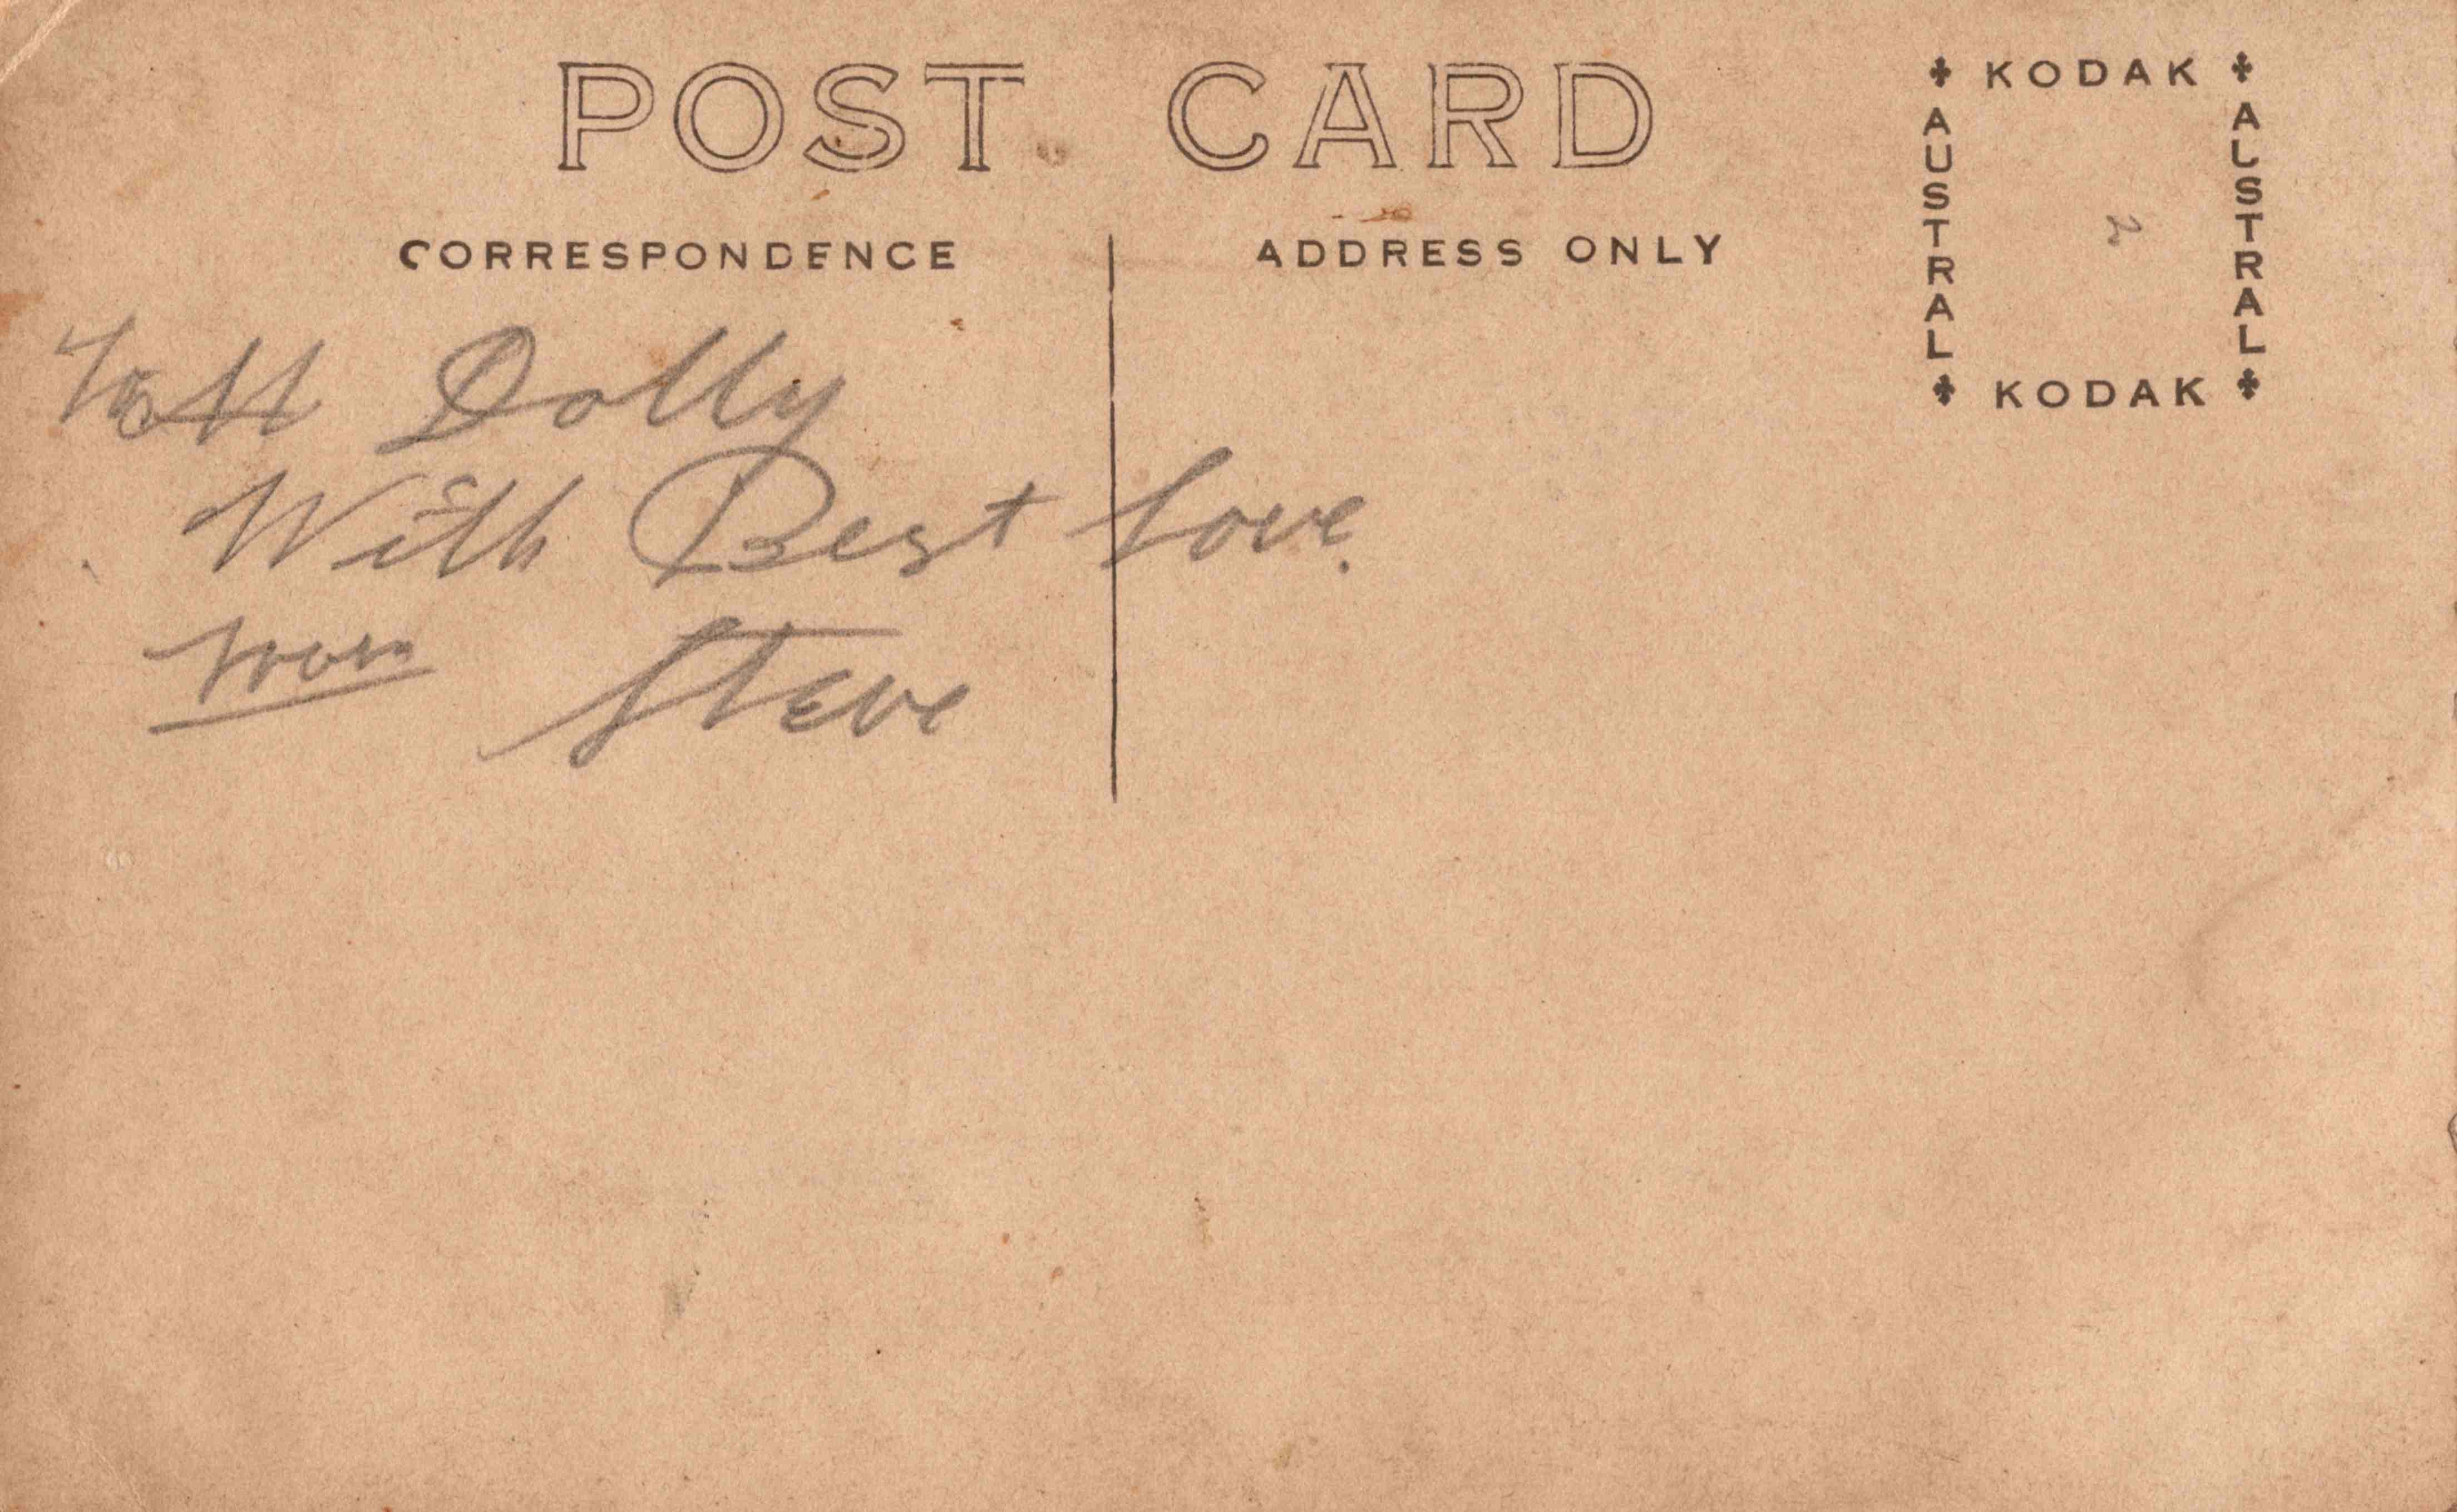 POST CARD
KODAK
AUSTRAL
AUSTRAL
KODAK
CORRESPONDENCE
ADDRESS ONLY
Dolly
With Best Love.
from Steve